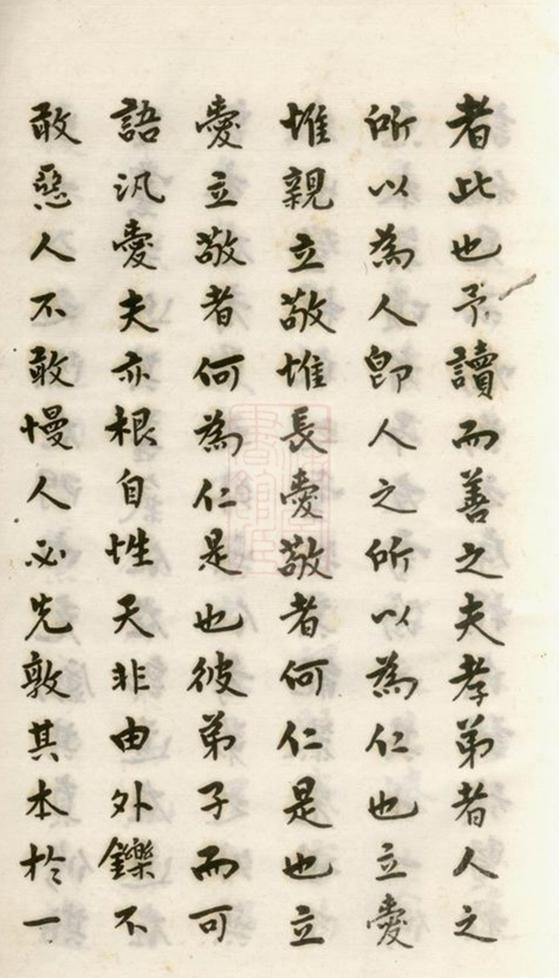 者此也予讀而善之夫孝弟者人之
所以為人卽人之所以為仁也立愛
惟親立敬惟長愛敬者何仁是也立
愛立敬者何為仁是也彼弟子而可
語汎愛夫亦根自性天非由外鑠不
敢惡人不敢慢人必先敦其本於一